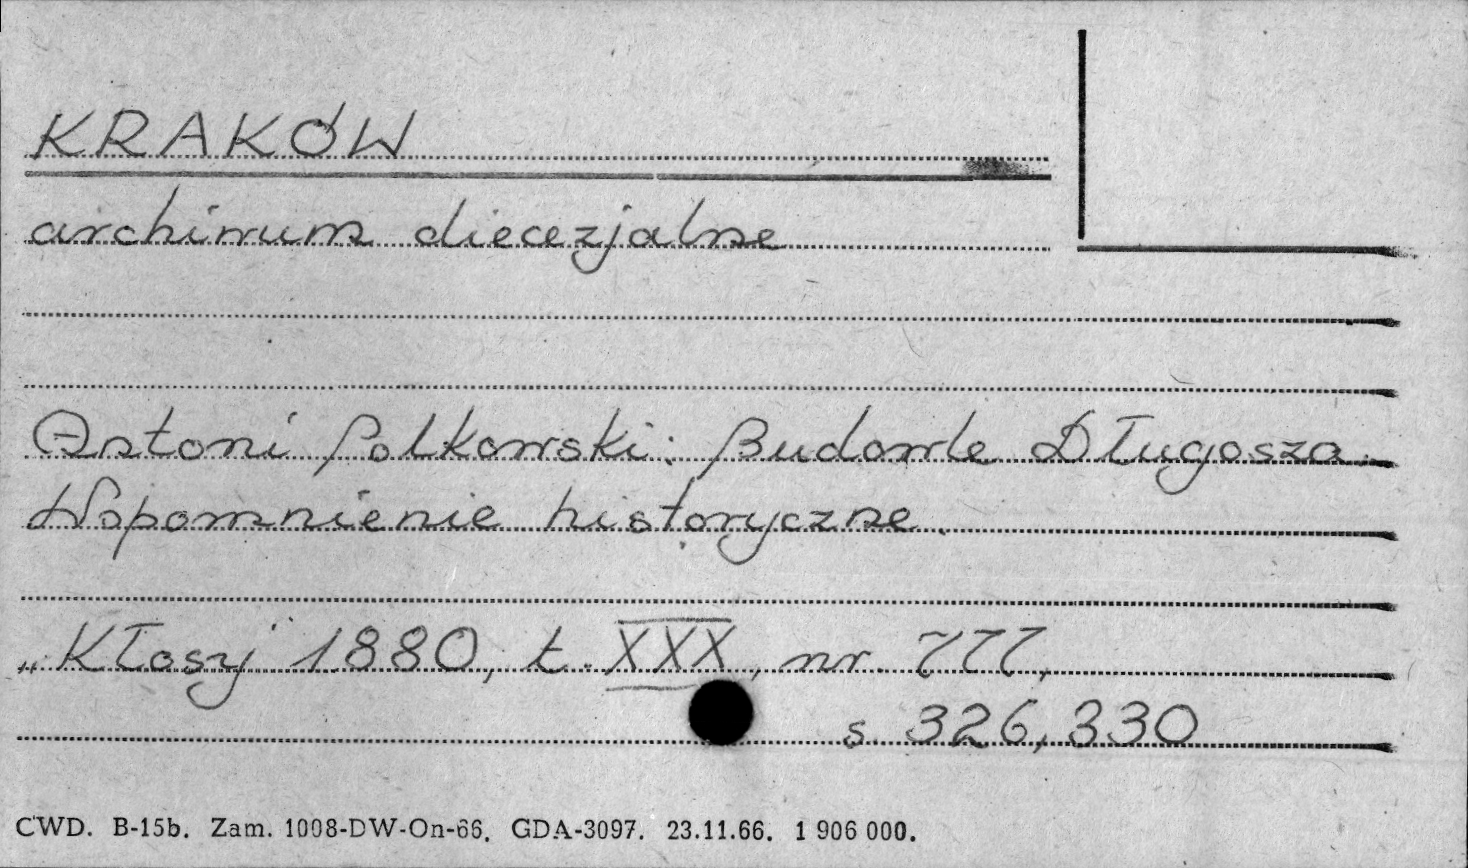 KRAKÓW
archiwum diecezjalne
Antoni Polkowski: Budowle Długosza.
Wspomnienie historyczne.
„Kłosy" 1880, t. XXX, nr 777,
s. 326, 330
CWD. B-15b. Zam. 1008-DW-On-66. GDA-3097. 23.11.66. 1 906 000.